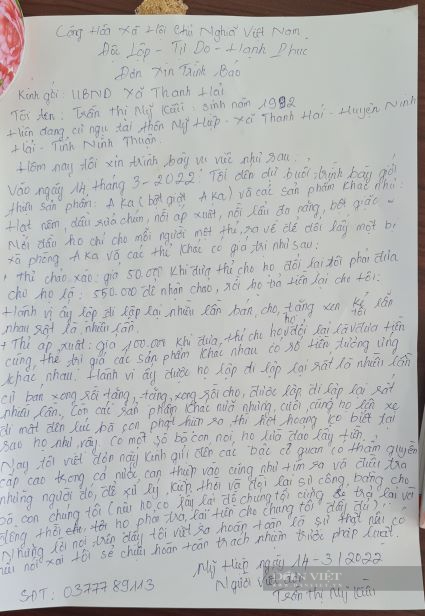 Cộng Hòa Xã Hội Chủ Nghĩa Việt Nam
Độc Lập - Tự Do - Hạnh Phúc
Đơn Xin Trình Báo
Kính gởi: UBND Xã Thanh Hải
Tôi tên: Trần Thị Mỹ : sinh năm 1992
Hiện đang cư ngụ tại thôn Mỹ Hiệp - xã Thanh Hải - Huyện Ninh
Hải - Tỉnh Ninh Thuận.
Hôm nay tôi xin trình bày vụ việc như sau:
Vào ngày 14, tháng 3 - 2022: Tôi đến dự buổi trình bày giới
thiệu sản phẩm: Aka (bột giặt Aka) và các sản phẩm khác như:
Hạt nêm, dầu rửa chén, nồi áp xuất, nồi lẩu đa năng, bột giặc
Nơi đầu họ chỉ cho mỗi người một thẻ, ra về để đổi lấy một bị
xà phòng Aka và các thẻ khác có giá trị như sau:
+ Thẻ chảo xào: giá 50.000 khi đưa thẻ cho họ đổi lại tôi phải đưa
cho họ là: 550.000 để nhận chảo, rồi họ trả tiền lại cho tôi.
Hành vi ấy lặp đi lặp lại nhiều lần bán, cho, tặng xen kẻ lẫn
nhau rất là nhiều lần.
+ Thẻ áp xuất: giá 100.000 khi đưa, thẻ cho họ tôi đổi lại là đưa tiền
cũng thế trị giá các sản phẩm khác nhau có số tiền tương ứng
khác nhau. Hành vi ấy được họ lặp đi lặp lại rất là nhiều lần
cứ bán xong rồi tặng, tặng xong rồi cho, được lặp đi lặp lại rất
nhiều lần. Còn các sản phẩm khác nữa nhưng, cuối cùng họ lên xe
đi mất đến lúc bà con, phát hiện ra thì hết hoảng ko biết tại
sao họ như vậy. Có một số bà con nói, họ lừa đảo lấy tiền.
Nay tôi viết đơn này kính gửi đến các bác cơ quan có thẩm quyền
cấp cao trong cả nước can thiệp vào cũng như tìm ra và điều tra
những người đó, để xử lý kịp thời và đòi lại sự công bằng cho
bà con chúng tôi (nếu họ có lấy lại đồ chúng tôi cũng sẽ trả lại và
đồng thời họ phải trả lại tiền cho chúng tôi đầy đủ).
Những lời nói trên đây tôi viết ra hoàn toàn là sự thật nếu có
nói xai tôi sẽ chịu hoàn toàn trách nhiệm trước pháp luật.
Mỹ Hiệp ngày 14 - 3 / 2022
Người viết
Trần Thị Mỹ
SĐT: 0377789113
DÂN VIỆT